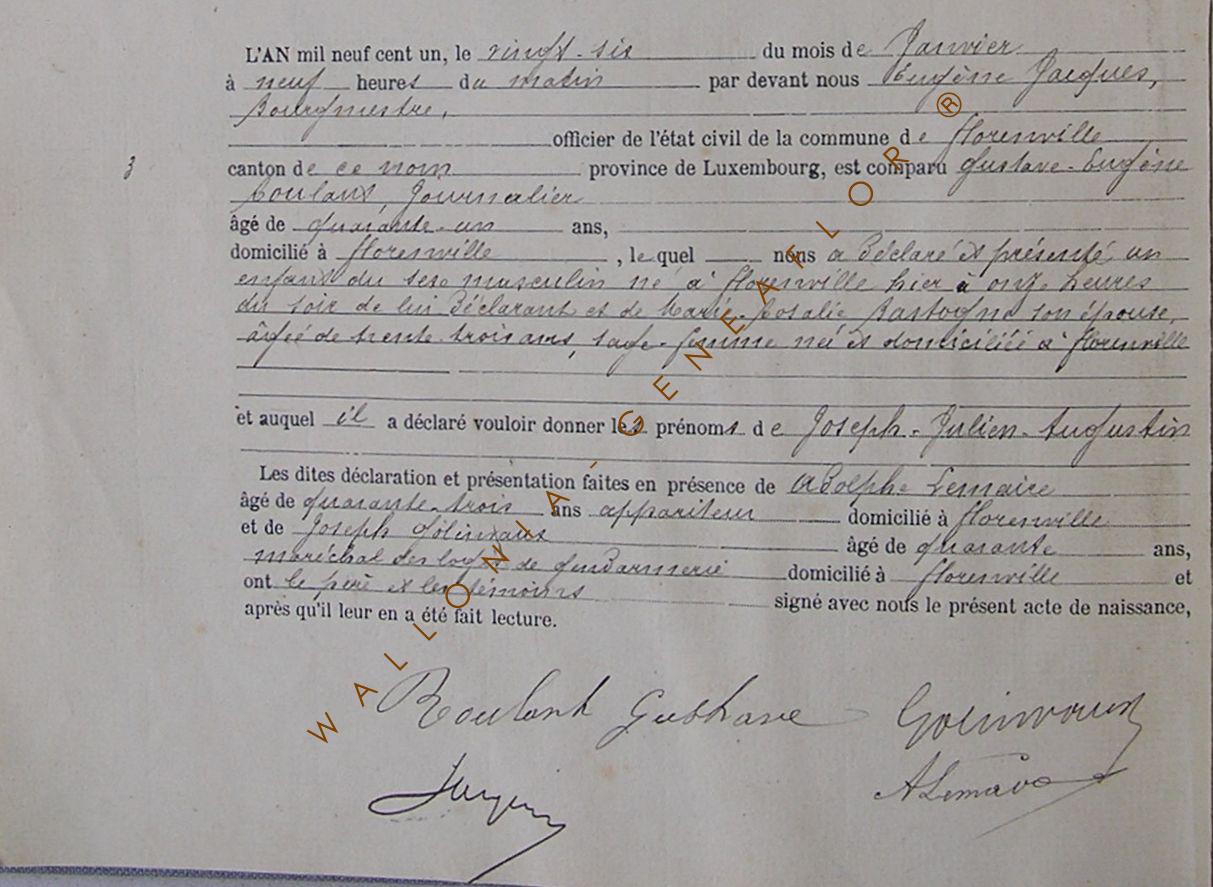 L'AN mil neuf cent un, le vingt-six du mois de Janvier
à neuf heures du matin par devant nous Eugène Jacques,
Bourgmestre,
officier de l'état civil de la commune de Florenville
3 canton de ce nom province de Luxembourg, est comparu Gustave-Eugène
Roulant, Journalier
âgé de quarante-un ans,
domicilié à Florenville, lequel nous a déclaré et présenté un
enfant du sexe masculin né à Florenville hier à onze heures
du soir de lui Déclarant et de Marie-Rosalie Bastogne son épouse,
âgée de trente-trois ans, sage-femme née et domiciliée à Florenville
et auquel il a déclaré vouloir donner les prénoms de Joseph-Julien-Augustin
Les dites déclaration et présentation faites en présence de Adolphe Lemaire
âgé de quarante-trois ans appariteur domicilié à Florenville
et de Joseph âgé de quarante ans,
maréchal des logis de gendarmerie domicilié à Florenville et
ont le père et les témoins signé avec nous le présent acte de naissance,
après qu'il leur en a été fait lecture.
Roulant Gustave
ALemaire
WALLONIA-GENEAFLOR®